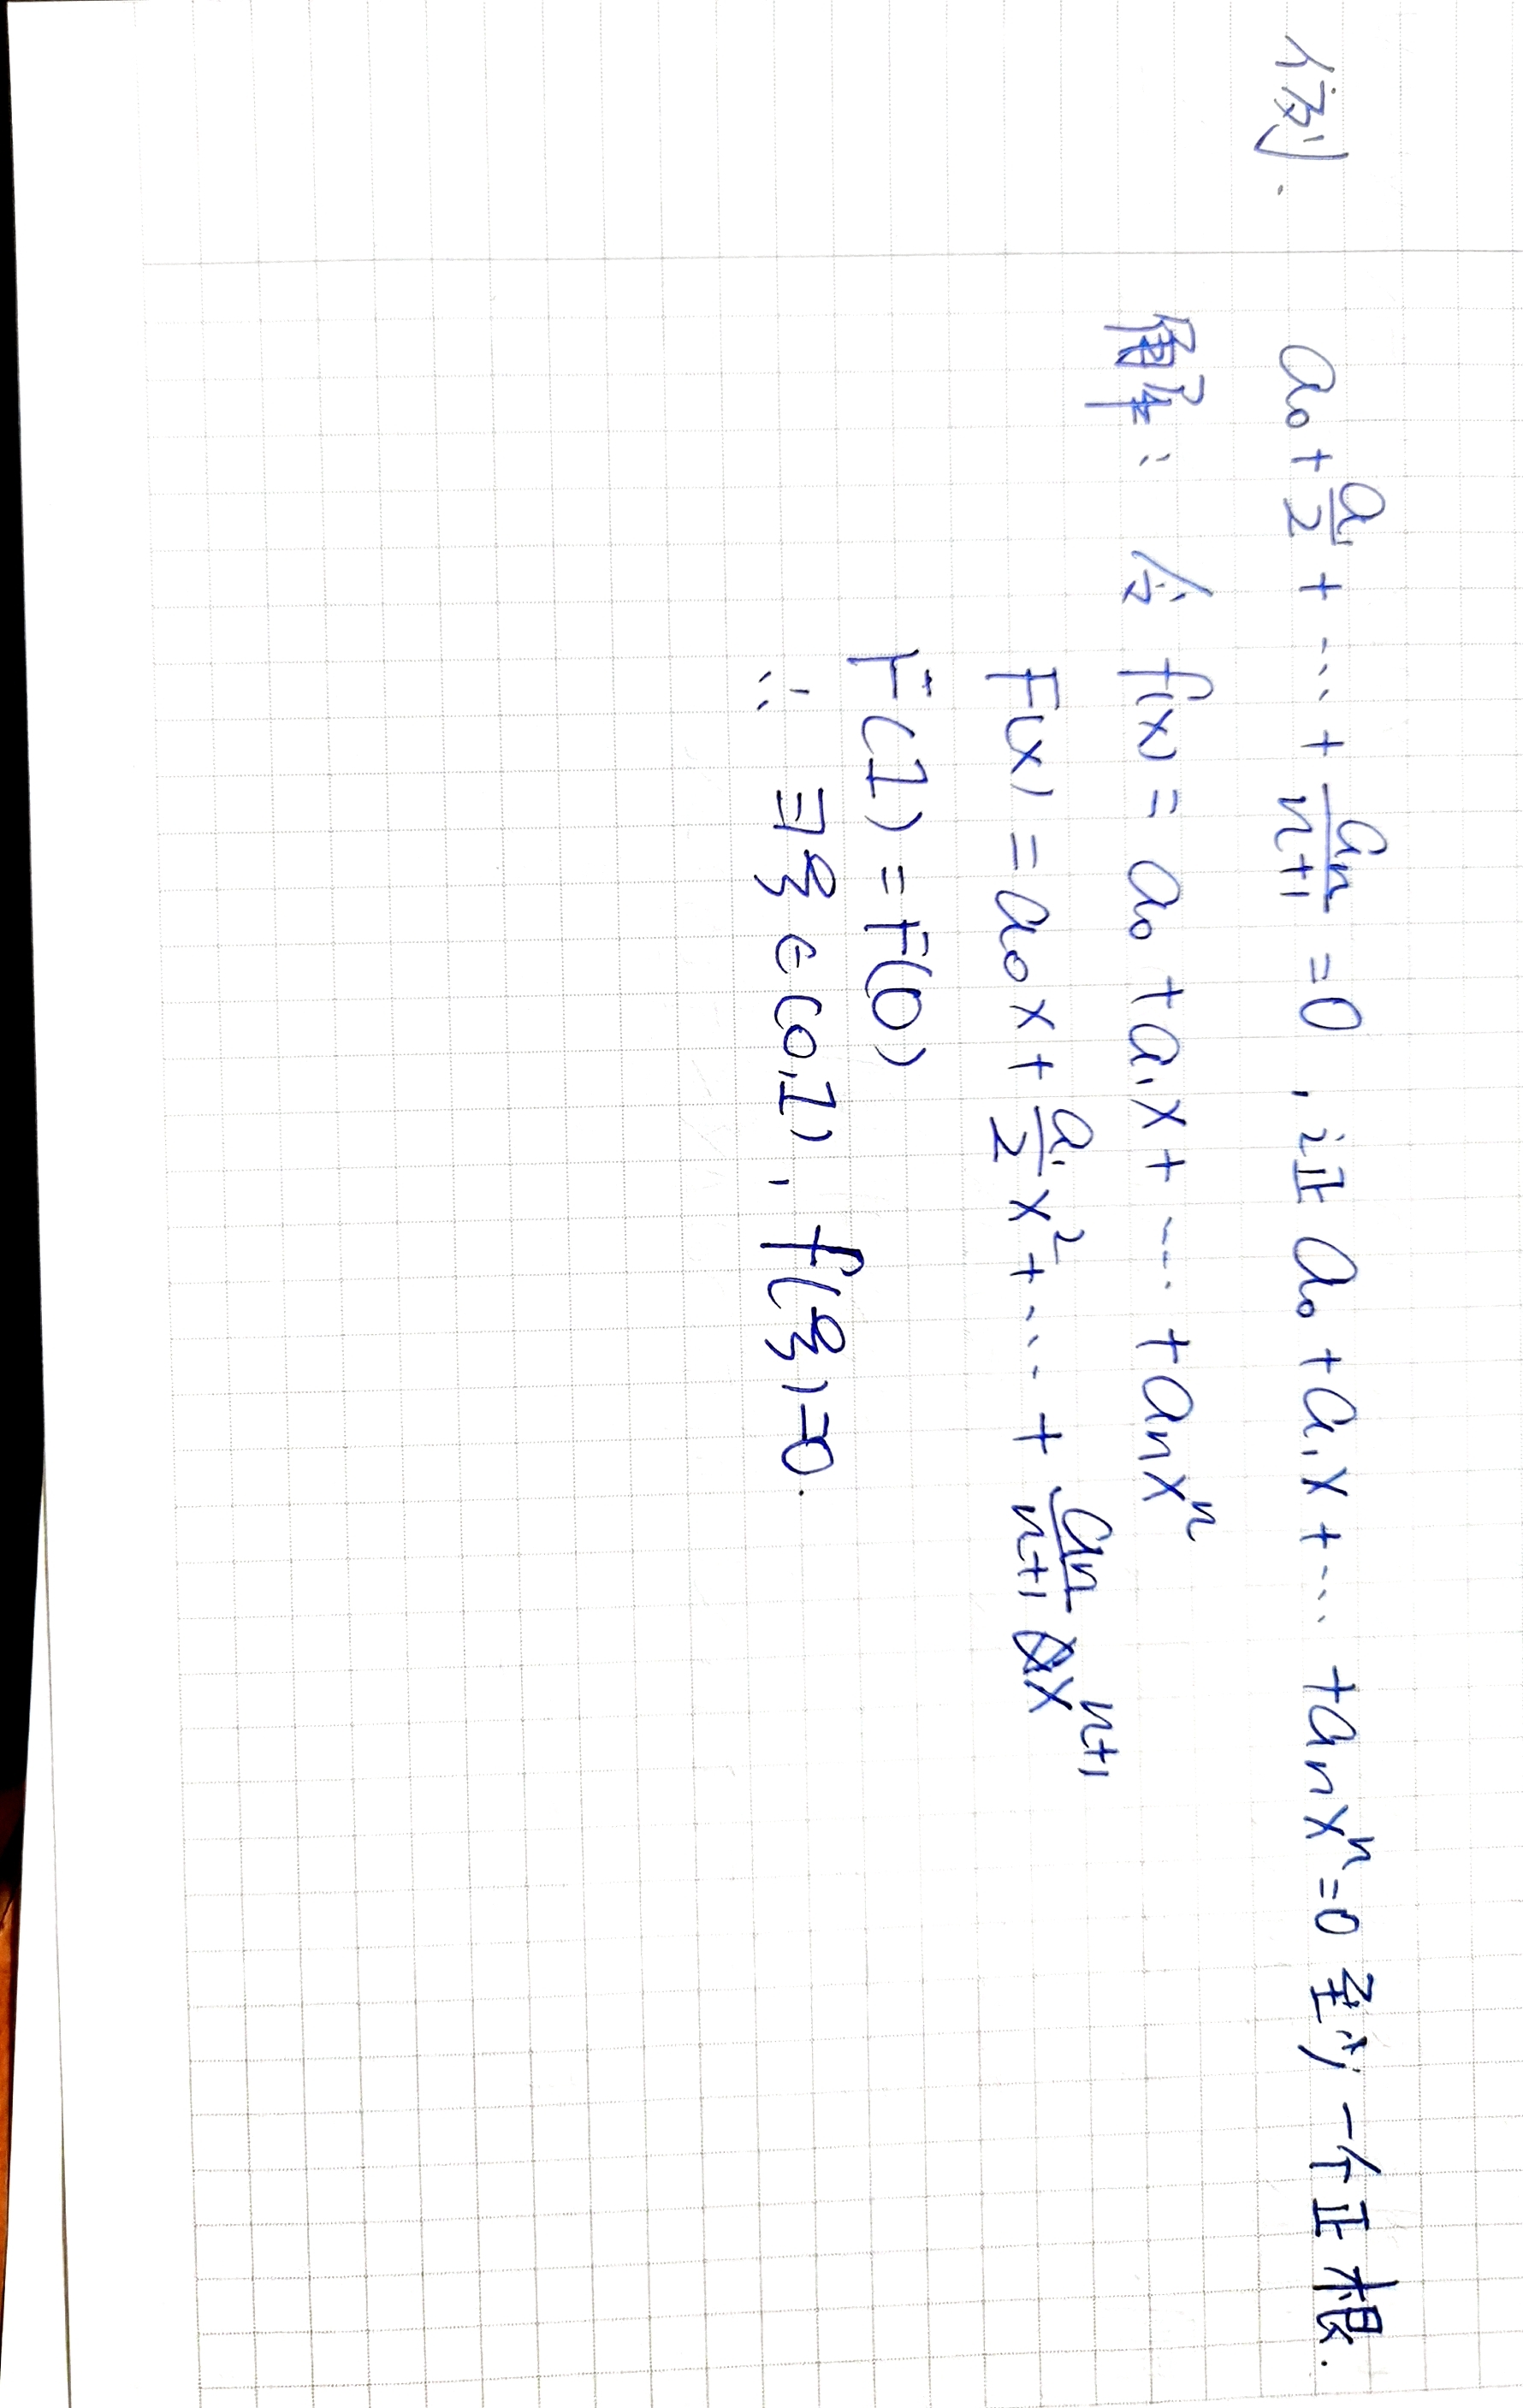 例. a₀ + a₁/2 + ⋯ + aₙ/(n+1) = 0 , 证 a₀ + a₁x + ⋯ + aₙxⁿ = 0 至少一个正根.
解: 令 f(x) = a₀ + a₁x + ⋯ + aₙxⁿ
F(x) = a₀x + a₁/2 x² + ⋯ + aₙ/(n+1) xⁿ⁺¹
F(1) = F(0)
∴ ∃ξ ∈ (0,1) , f(ξ)=0.